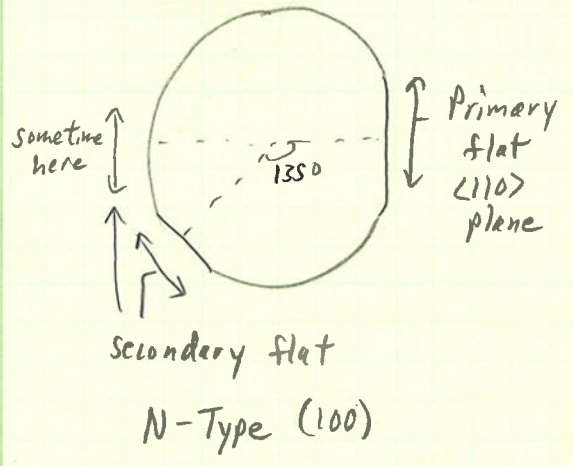 sometime
here
1350
Primary
flat
<110>
plane
secondary flat
N-Type (100)